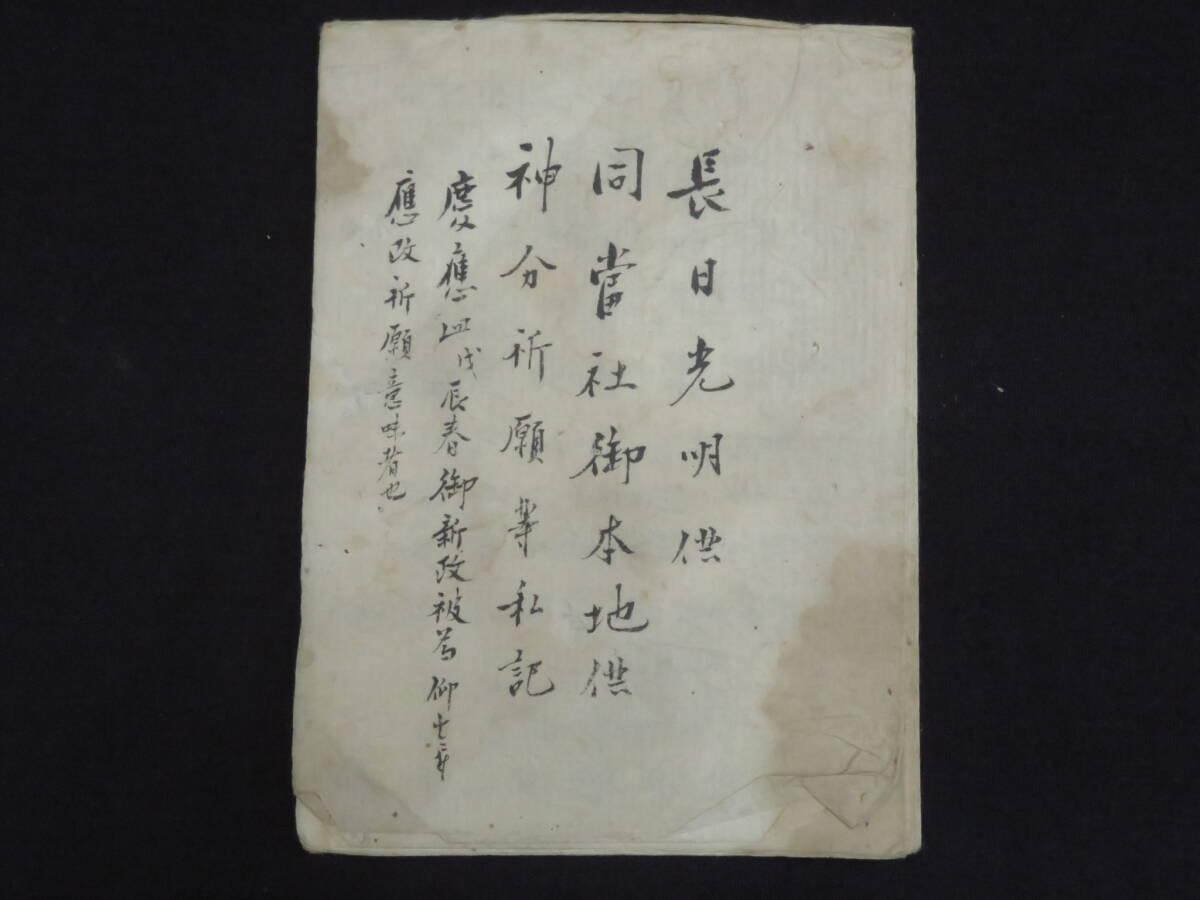 長日光明供
同當社御本地供
神分祈願等私記
慶應四戊辰春御新政被為仰
應改祈願意味者也